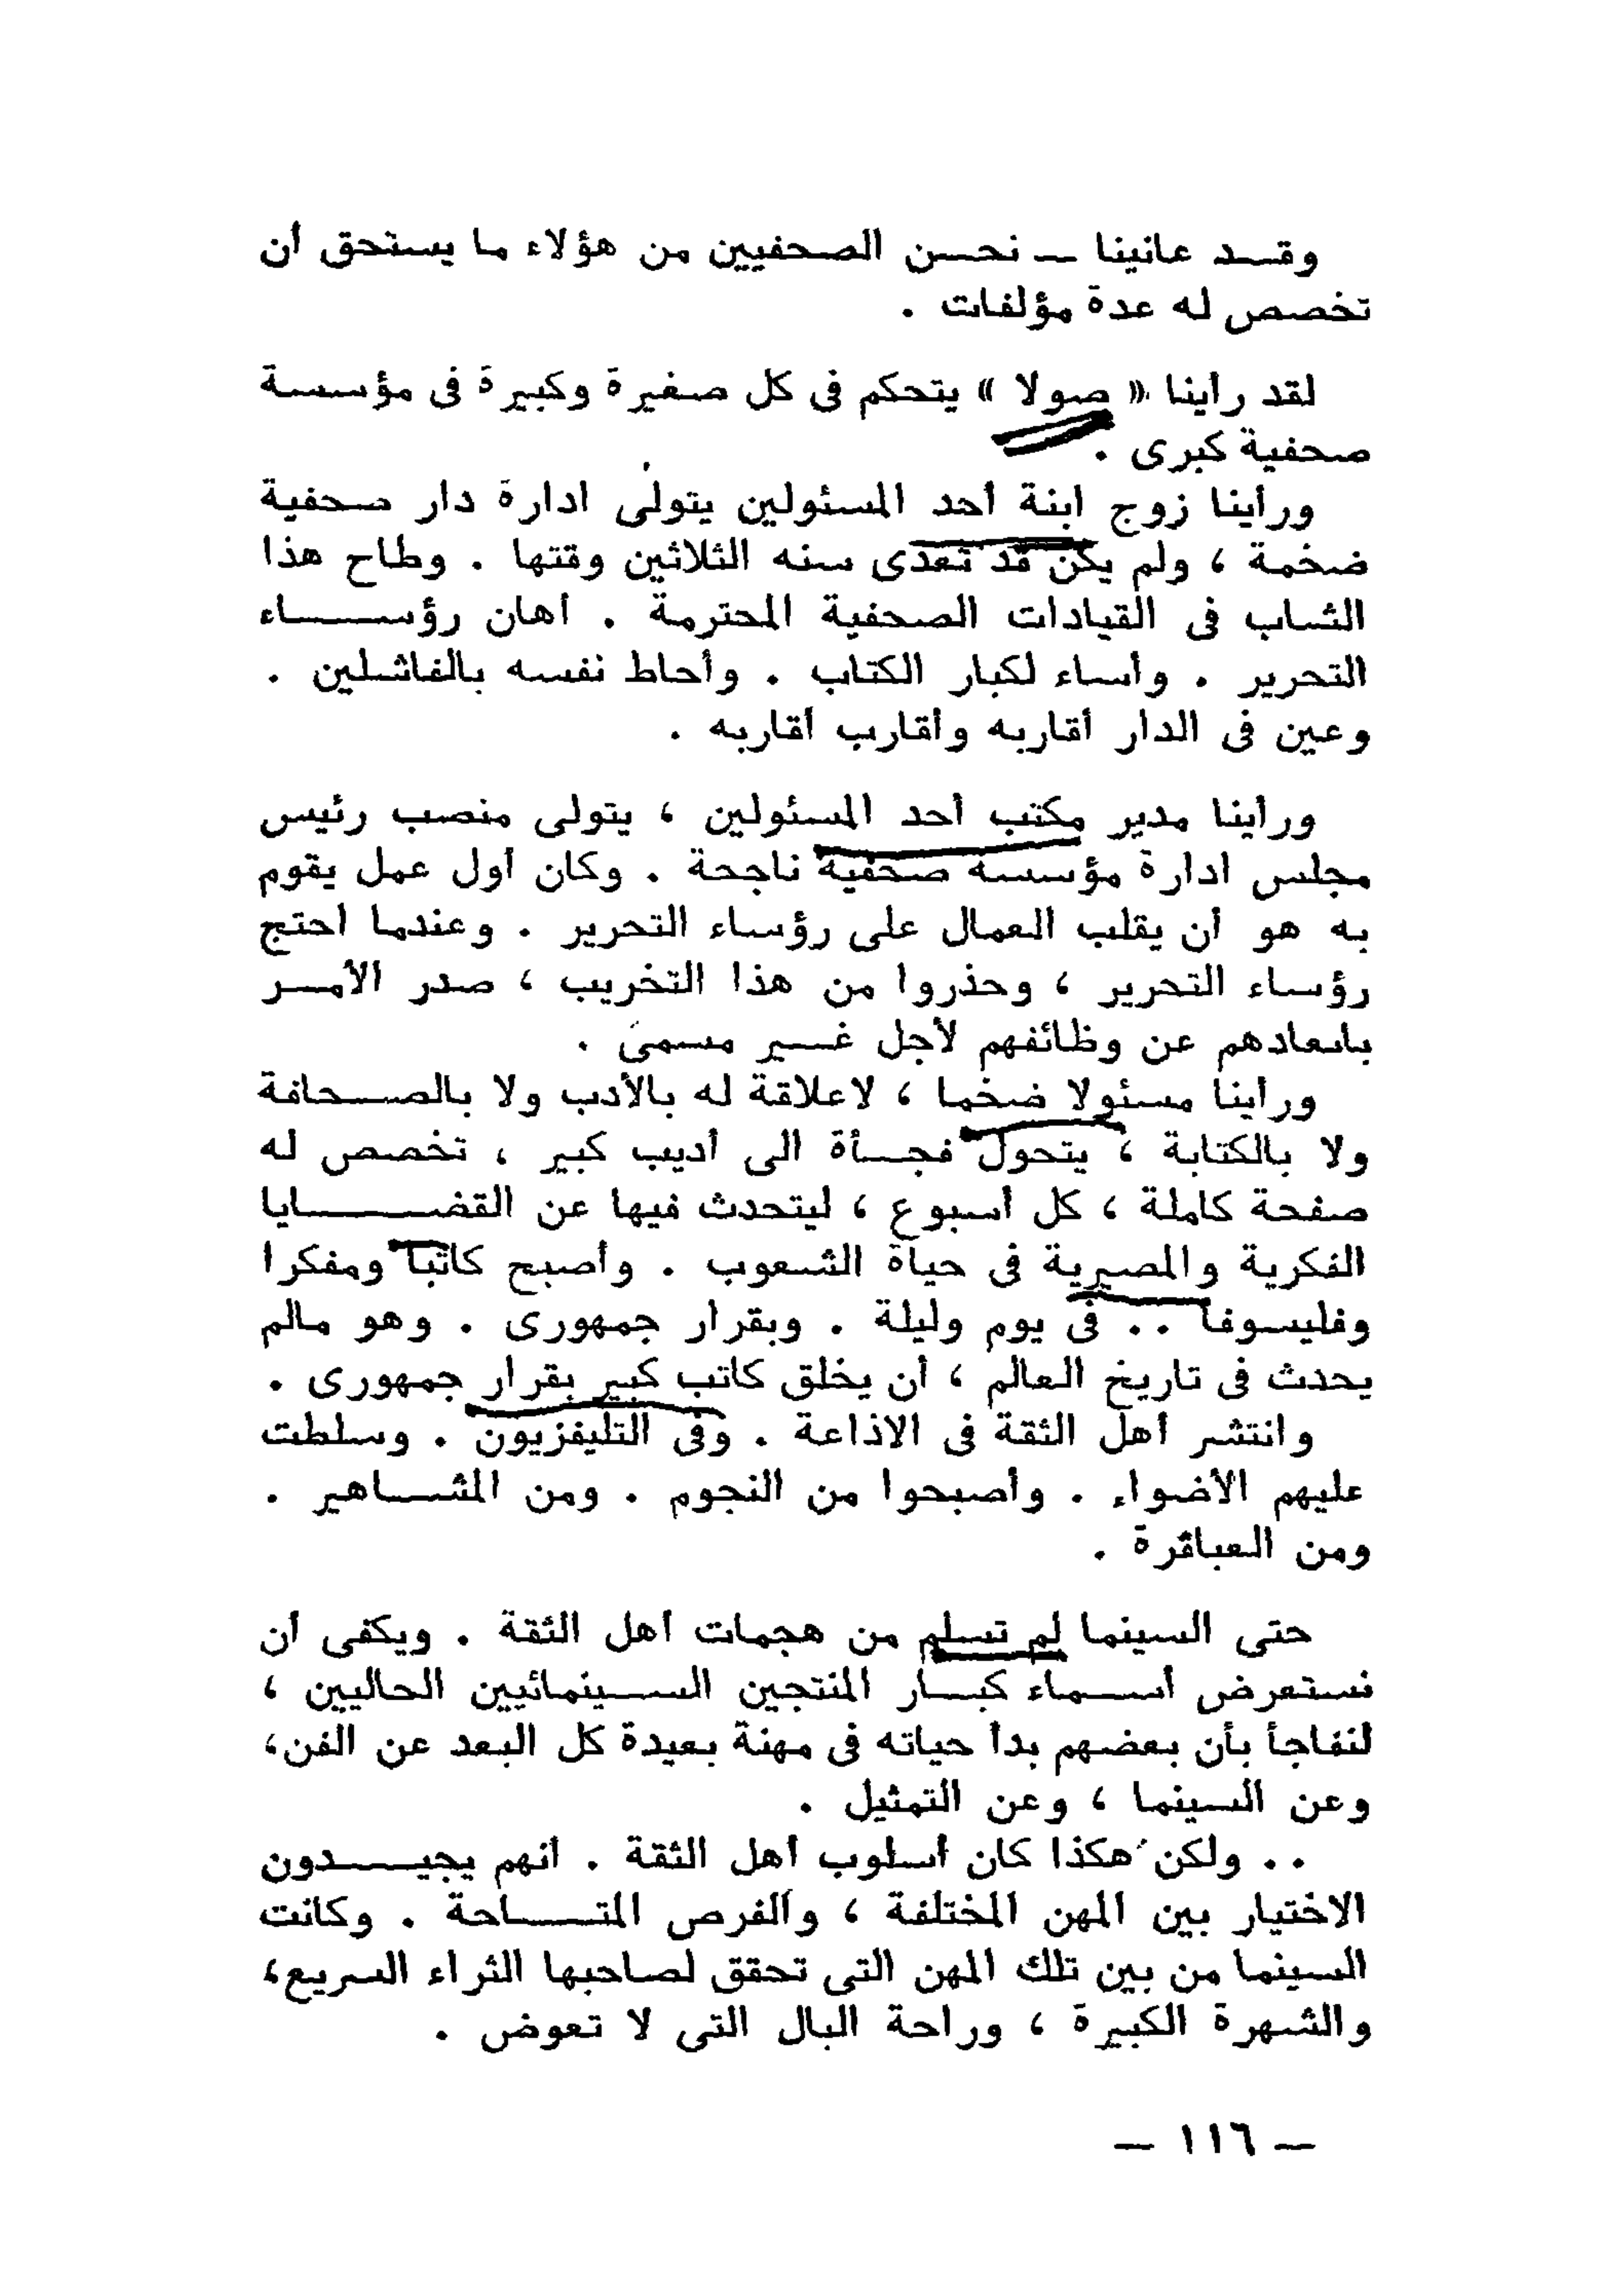 وقد عانينا — نحن الصحفيين من هؤلاء ما يستحق أن
تخصص له عدة مؤلفات .
لقد رأينا « صولا » يتحكم فى كل صغيرة وكبيرة فى مؤسسة
صحفية كبرى .
ورأينا زوج ابنة أحد المسئولين يتولى ادارة دار صحفية
ضخمة ، ولم يكن قد تعدى سنه الثلاثين وقتها . وطاح هذا
الشاب فى القيادات الصحفية المحترمة . أهان رؤساء
التحرير . وأساء لكبار الكتاب . وأحاط نفسه بالفاشلين .
وعين فى الدار أقاربه وأقارب أقاربه .
ورأينا مدير مكتب أحد المسئولين ، يتولى منصب رئيس
مجلس ادارة مؤسسة صحفية ناجحة . وكان أول عمل يقوم
به هو أن يقلب العمال على رؤساء التحرير . وعندما احتج
رؤساء التحرير ، وحذروا من هذا التخريب ، صدر الأمر
بابعادهم عن وظائفهم لأجل غير مسمى .
ورأينا مسئولا ضخما ، لاعلاقة له بالأدب ولا بالصحافة
ولا بالكتابة ، يتحول فجأة الى أديب كبير ، تخصص له
صفحة كاملة ، كل أسبوع ، ليتحدث فيها عن القضايا
الفكرية والمصيرية فى حياة الشعوب . وأصبح كاتبا ومفكرا
وفليسوفا .. فى يوم وليلة . وبقرار جمهورى . وهو مالم
يحدث فى تاريخ العالم ، أن يخلق كاتب كبير بقرار جمهورى .
وانتشر أهل الثقة فى الاذاعة . وفى التليفزيون . وسلطت
عليهم الأضواء . وأصبحوا من النجوم . ومن المشاهير .
ومن العباقرة .
حتى السينما لم تسلم من هجمات أهل الثقة . ويكفى أن
نستعرض أسماء كبار المنتجين السينمائيين الحاليين ،
لنفاجأ بأن بعضهم بدأ حياته فى مهنة بعيدة كل البعد عن الفن،
وعن السينما ، وعن التمثيل .
.. ولكن هكذا كان أسلوب أهل الثقة . انهم يجيدون
الاختيار بين المهن المختلفة ، والفرص المتاحة . وكانت
السينما من بين تلك المهن التى تحقق لصاحبها الثراء السريع،
والشهرة الكبيرة ، وراحة البال التى لا تعوض .
— ١١٦ —